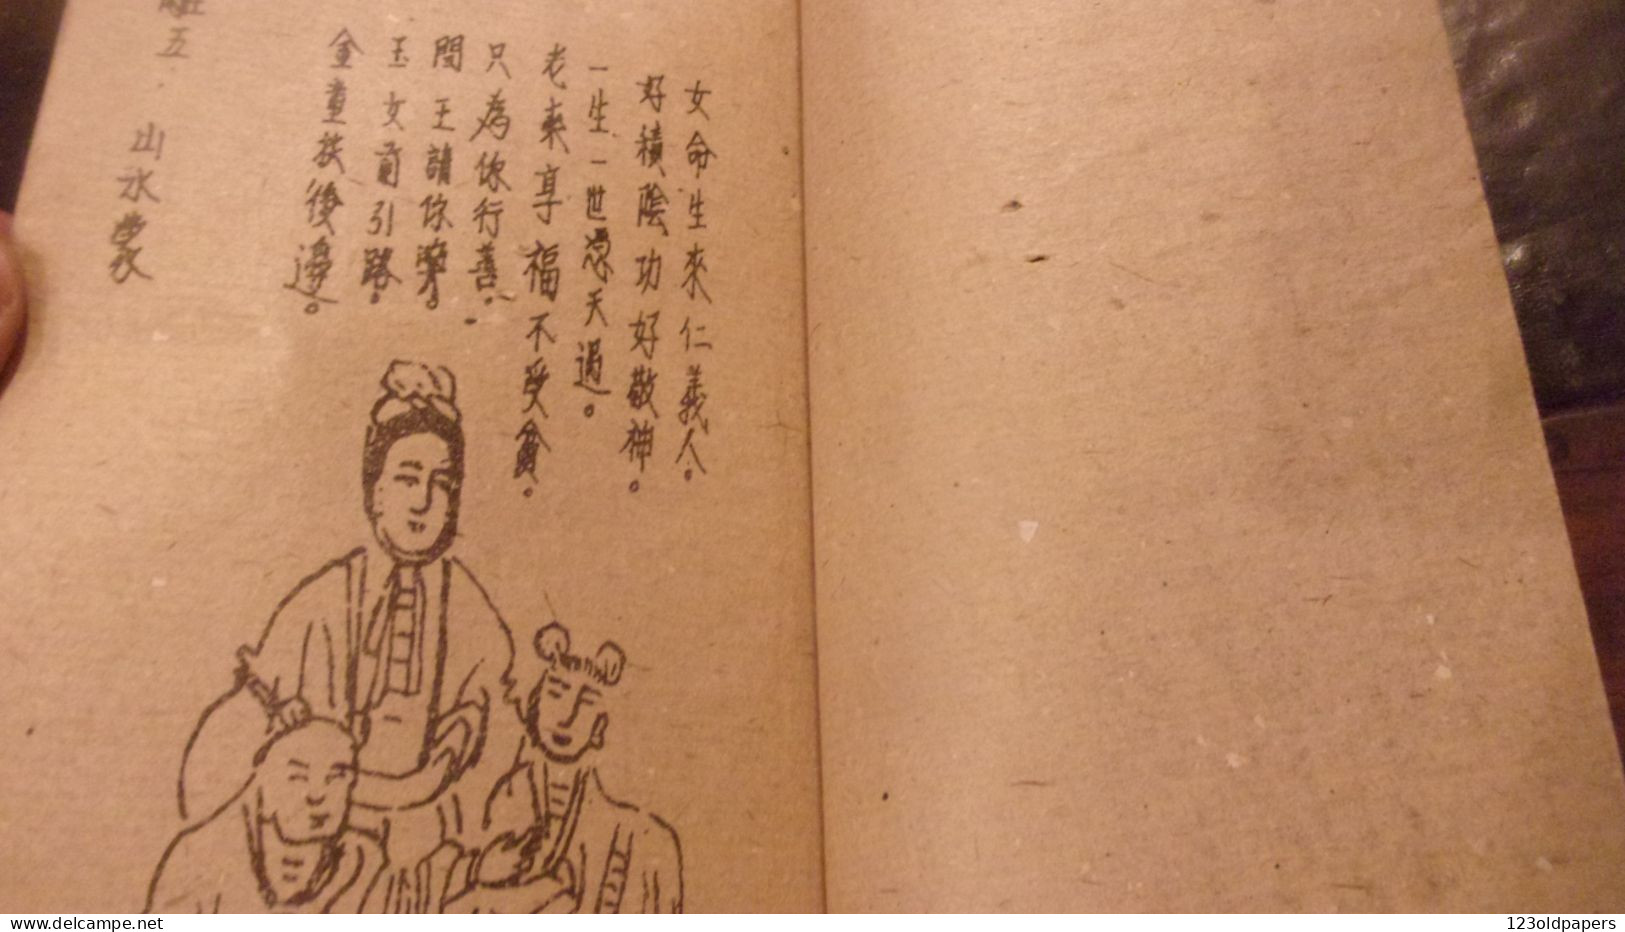 女命生來仁義人。
好積陰功好敬神。
一生一世憑天過。
老來享福不受貪。
只為你行善。
閻王請你
玉女前引路。
金童扶後邊。
五.山水蒙
www.delcampe.net
123oldpapers